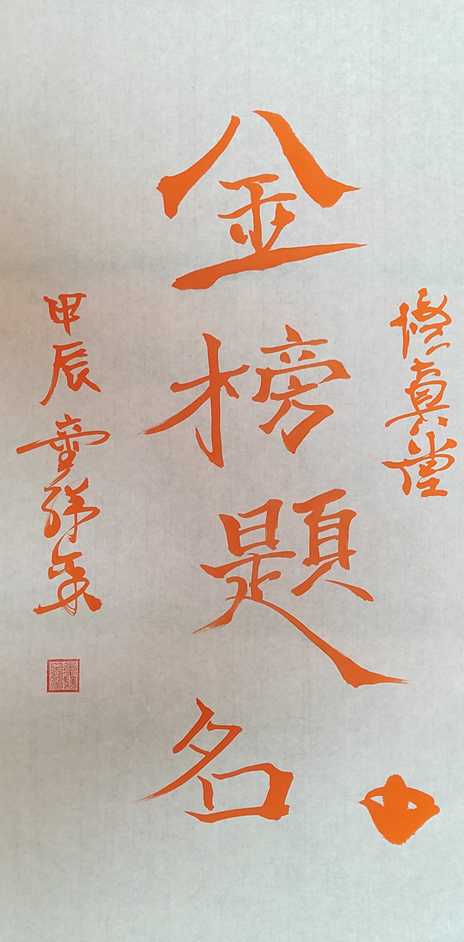 修真堂
金榜題名
甲辰童